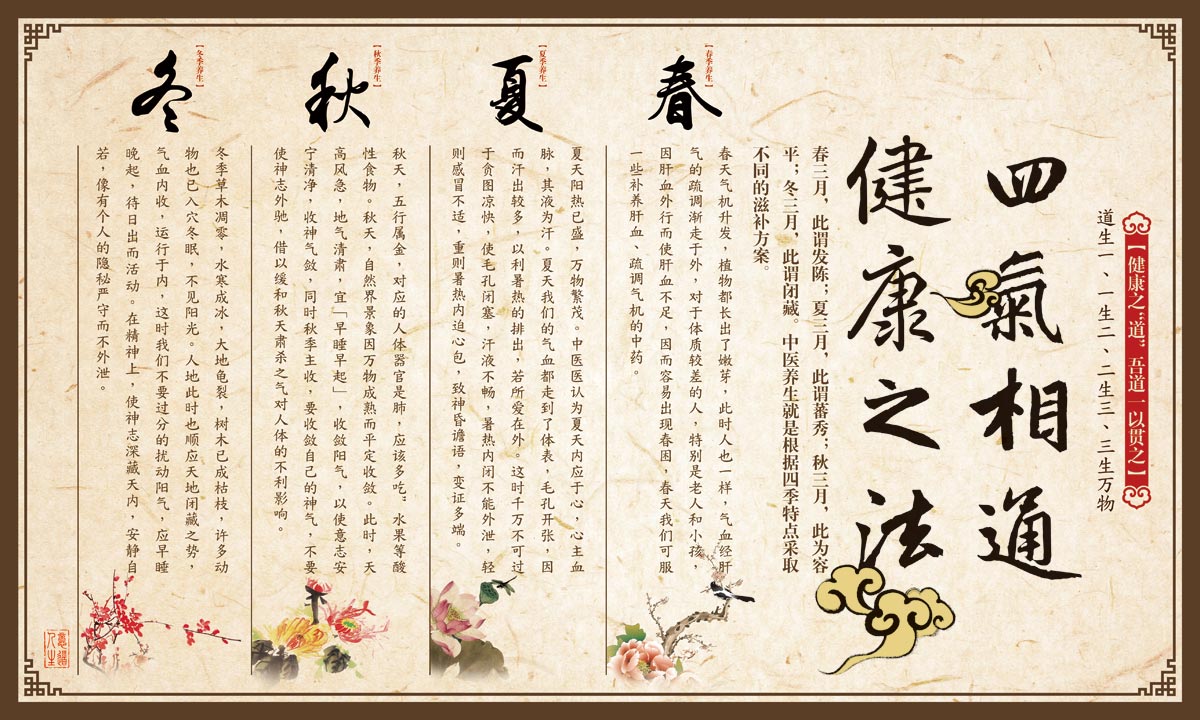 【健康之“道” 吾道一以贯之】
道生一、一生二、二生三、三生万物
四氣相通
健康之法
春三月，此谓发陈；夏三月，此谓蕃秀；秋三月，此为容
平；冬三月，此谓闭藏。中医养生就是根据四季特点采取
不同的滋补方案。
【春季养生】
春
春天气机升发，植物都长出了嫩芽，此时人也一样，气血经肝
气的疏调渐走于外，对于体质较差的人，特别是老人和小孩，
因肝血外行而使肝血不足，因而容易出现春困，春天我们可服
一些补养肝血、疏调气机的中药。
【夏季养生】
夏
夏天阳热已盛，万物繁茂。中医医认为夏天内应于心，心主血
脉，其液为汗。夏天我们的气血都走到了体表，毛孔开张，因
而汗出较多，以利暑热的排出，若所爱在外。这时千万不可过
于贪图凉快，使毛孔闭塞，汗液不畅，暑热内闭不能外泄，轻
则感冒不适，重则暑热内迫心包，致神昏谵语，变证多端。
【秋季养生】
秋
秋天，五行属金，对应的人体器官是肺，应该多吃：水果等酸
性食物。秋天，自然界景象因万物成熟而平定收敛。此时，天
高风急，地气清肃，宜「早睡早起」，收敛阳气，以使意志安
宁清净，收神气敛，同时秋季主收，要收敛自己的神气，不要
使神志外驰，借以缓和秋天肃杀之气对人体的不利影响。
【冬季养生】
冬
冬季草木凋零，水寒成冰，大地龟裂，树木已成枯枝，许多动
物也已入穴冬眠，不见阳光。人地此时也顺应天地闭藏之势，
气血内收，运行于内，这时我们不要过分的扰动阳气，应早睡
晚起，待日出而活动。在精神上，使神志深藏天内，安静自
若，像有个人的隐秘严守而不外泄。